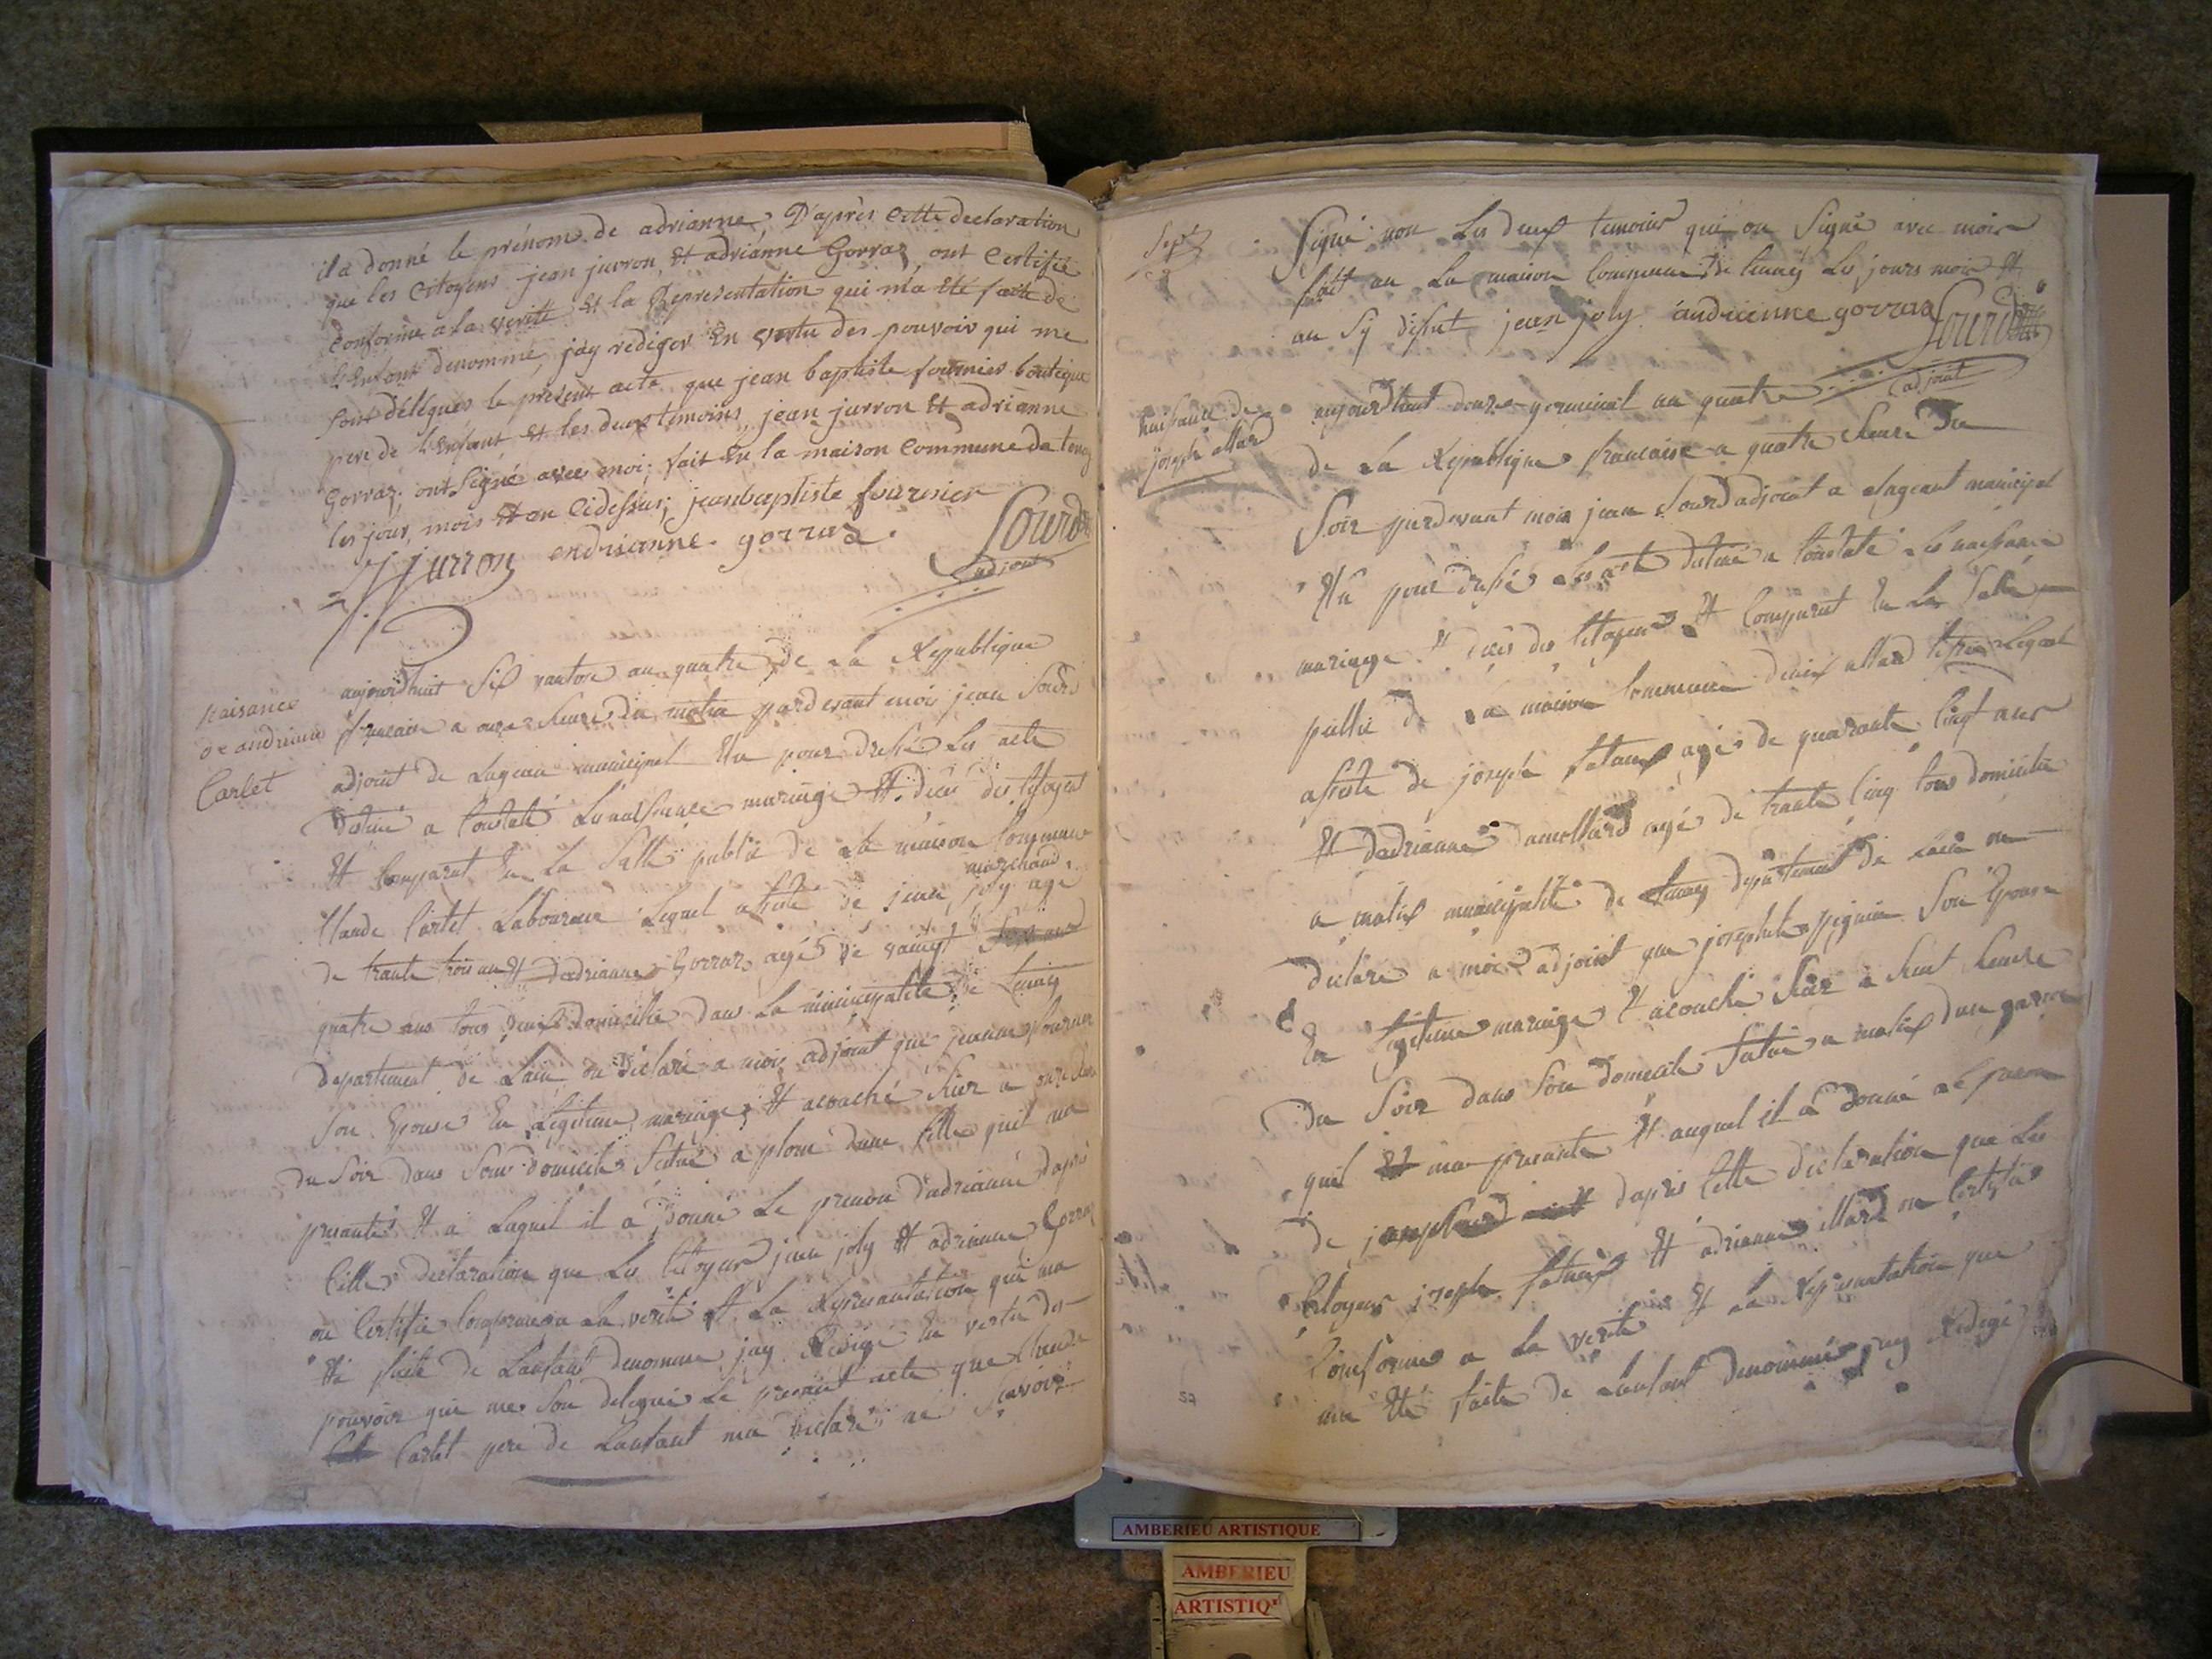 il a donné le prénom de adrianne, D'après Cette declaration
que les citoyens jean jurron Et adriánne Gorraz ont Certifié
Conforme a la verité Et la Representation qui m'a Eté faite de
l'Enfant denommé, jay rediger En vertu des pouvoir qui me
sont délégués le présent acte que jean baptiste fournier boutique
pere de l'Enfant Et les deux témoins, jean jurron Et adrianne
Gorraz ont Signé avec moi; fait En la maison Commune de tenay
les jour, mois Et an Cidessus; jeanbaptiste fournier
jjurron endrieanne gorraz Sourd
adjoint
naisance
de andrienne
Carlet
aujourdhuit Six vantose an quatre de La Republique
francaise a onze heure du matin pardevant mois jean Sourd
adjoint de Lagean municipal Elu pour dresse Les acte
Destiné a Constate La naissance mariage Et deces des Citoyens
Et Comparut En La Salle public de La maison Commune
Claude Cartet Laboureur Lequel assisté de jean joly marchand age
de trante trois ans Et dadrianne Gorraz agé de vaingt
quatre ans tous deux domicilie dans La municipalité de Tenay
departement de Lain ou declaré a mois adjoint que jeanne fournier
Son Epouse En Legitime mariage Et acouché hier a onze heure
du Soir dans Son domicile Situé a plom dune fille quil ma
presanté Et a Laquel il a donné Le prenom dadrianne dapres
Cette declaration que Les Citoyens jean joly Et adrianne Gorraz
on Certifie Conforme a La verité Et La Represantation qui ma
Eté faite de Lanfant denommé jay Redigé En vertu des
pouvoir qui me Son delegué Le presant acte que Claude
Cartet pere de Lanfant ma declaré ne Scavoir
Sept
Signé non Les deux temoins qui on Signé avec mois
fait en La maison Commune de tenay Les jours mois Et
an Sy desut jean joly andrienne gorraz Sourd
adjoint
naissance de
joseph allard
aujourdhuit douze germinal an quatre
de La Republique francaise a quatre heure Du
Soir pardevant mois jean Sourd adjoint a Lageant municipal
Elu pour dressé Les acte destiné a Constaté Les naissance
mariage Et deces des Citoyens Et Comparut En La Salle
public de La maison Commune denis allard Lequel
assisté de joseph agé de quarante Cinq ans
Et dadrianne agé de trante Cinq tous domicilie
a matix municipalité de tenay departement de Lain on
declare a mois adjoint que josephte Son Epouse
En Legitime mariage Et acouché hier a huit heure
Du Soir dans Son domicile Situé a matix dun garcon
quil ma presanté Et auquel il a donné Le prenom
de joseph dapres Cette declaration que Les
Citoyens joseph Et adrianne allard on Certifié
Conforme a La verité Et La Representation que
ma Eté faite de Lanfant denommé jay Redigé